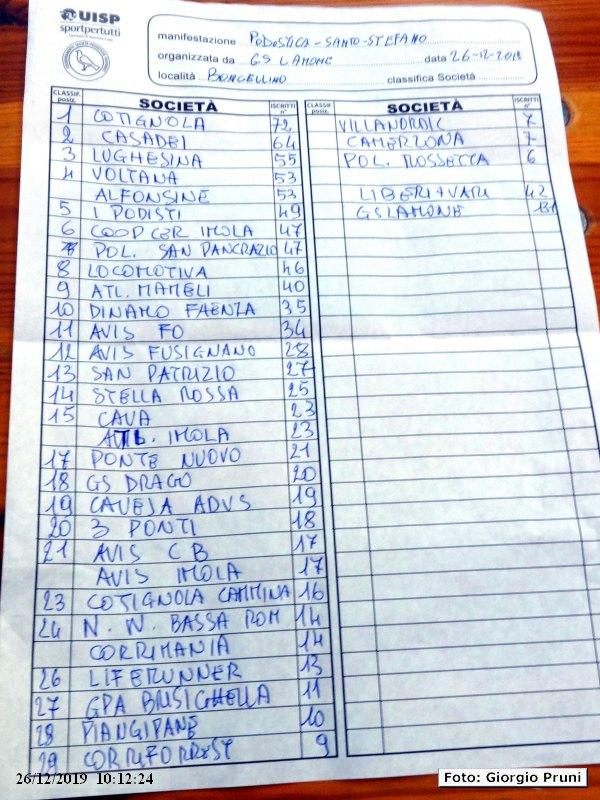 UISP
sportpertutti
manifestazione PODISTICA - SANTO-STEFANO
organizzata da GS LAMONE data 26-12-2019
località BORGELLINO classifica Società
CLASSIF. posiz. SOCIETÀ ISCRITTI n°
1 COTIGNOLA 72
2 CASADEI 64
3 LUGHESINA 55
4 VOLTANA 53
ALFONSINE 53
5 I PODISTI 49
6 COOP CER IMOLA 47
POL. SAN PANCRAZIO 47
8 LOCOMOTIVA 46
9 ATL. MAMELI 40
10 DINAMO FAENZA 35
11 AVIS FO 34
12 AVIS FUSIGNANO 28
13 SAN PATRIZIO 27
14 STELLA ROSSA 25
15 CAVA 23
ATL. IMOLA 23
17 PONTE NUOVO 21
18 GS DRAGO 20
19 CAVEJA ADVS 19
20 3 PONTI 18
21 AVIS CB 17
AVIS IMOLA 17
23 COTIGNOLA CAMMINA 16
24 N. W. BASSA ROM 14
CORRIMANIA 14
26 LIFERUNNER 13
27 GPA BRISIGHELLA 11
28 PIANGIPANE 10
29 CORRIFORREST 9
CLASSIF. posiz. SOCIETÀ ISCRITTI n°
7
CAMERLONA 7
POL. ROSSETTA 6
LIBERI + VARI 42
GS LAMONE 131
26/12/2019 10:12:24
Foto: Giorgio Pruni